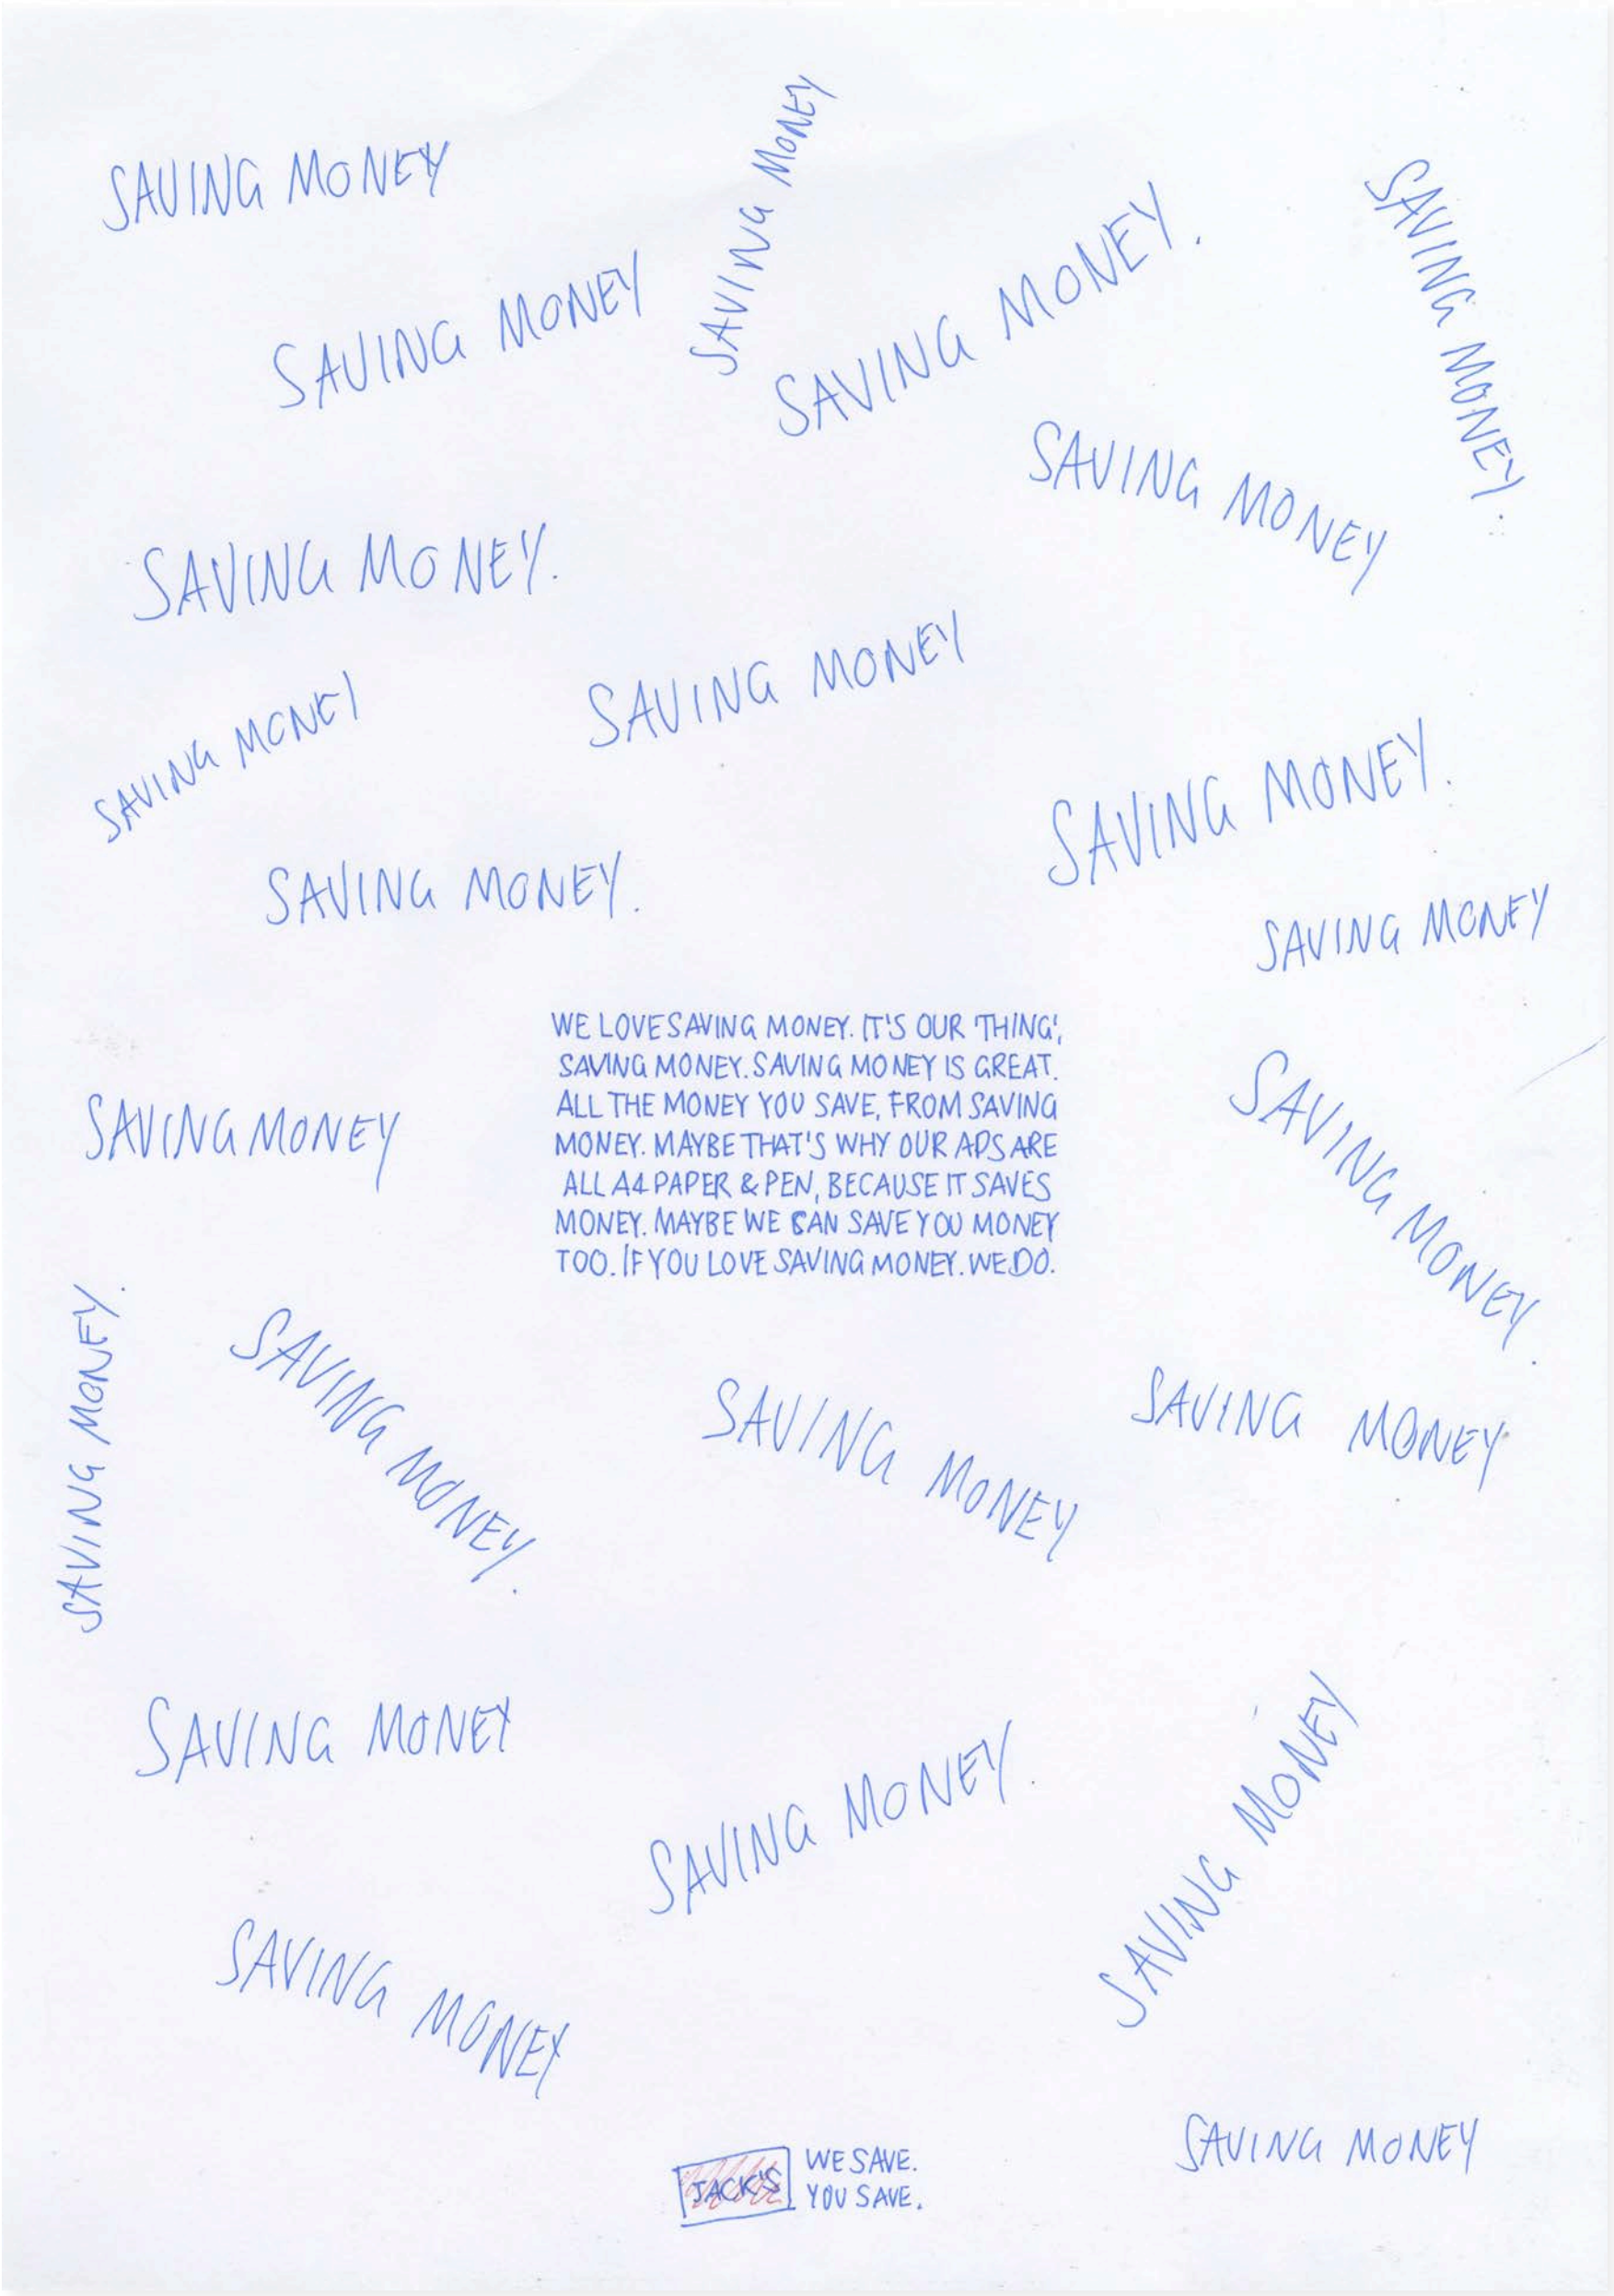 SAVING MONEY
SAVING MONEY
SAVING MONEY
SAVING MONEY.
SAVING MONEY.
SAVING MONEY
SAVING MONEY.
SAVING MONEY
SAVING MONEY
SAVING MONEY.
SAVING MONEY.
SAVING MONEY
WE LOVE SAVING MONEY. IT'S OUR 'THING',
SAVING MONEY. SAVING MONEY IS GREAT.
ALL THE MONEY YOU SAVE, FROM SAVING
MONEY. MAYBE THAT'S WHY OUR ADS ARE
ALL A4 PAPER & PEN, BECAUSE IT SAVES
MONEY. MAYBE WE CAN SAVE YOU MONEY
TOO. IF YOU LOVE SAVING MONEY. WE DO.
SAVING MONEY
SAVING MONEY.
SAVING MONEY.
SAVING MONEY.
SAVING MONEY
SAVING MONEY
SAVING MONEY
SAVING MONEY.
SAVING MONEY
SAVING MONEY
SAVING MONEY
JACK'S
WE SAVE.
YOU SAVE.